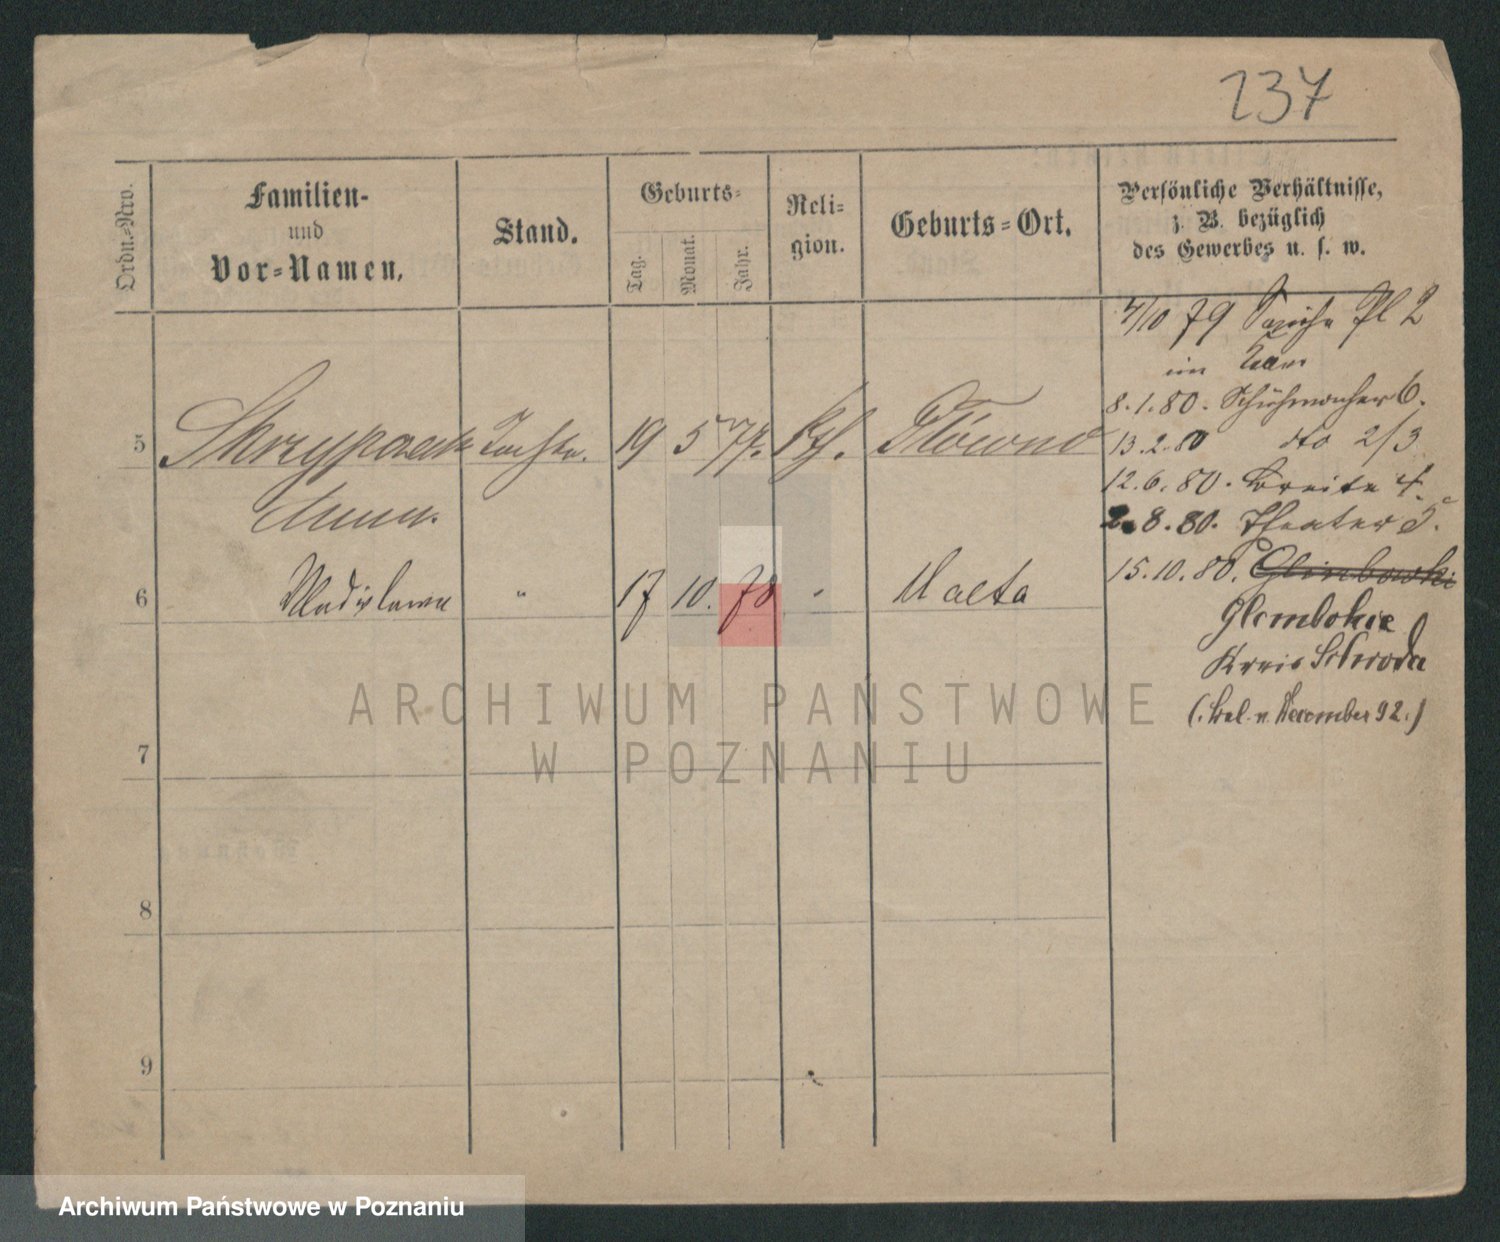 237
Ordn.-Nro.
Familien-
und
Vor-Namen.
Stand.
Geburts-
Tag.
Monat.
Jahr.
Reli-
gion.
Geburts-Ort.
Persönliche Verhältnisse,
z. B. bezüglich
des Gewerbes u. s. w.
4/10 79 Pl 2
im
8.1.80. Schuhmacher 6.
5 19 5 77. Kth. Główno
13.2.80 dto 2/3
12.6.80. Breite 4.
Anna.
2.8.80. Theater 5.
15.10.80. Glinbowski
6 Wladislawa " 17 10. 78 " Malta
Glembokie
Kreis Schroda
(. v. December 92.)
ARCHIWUM PAŃSTWOWE
W POZNANIU
7
8
9
Archiwum Państwowe w Poznaniu